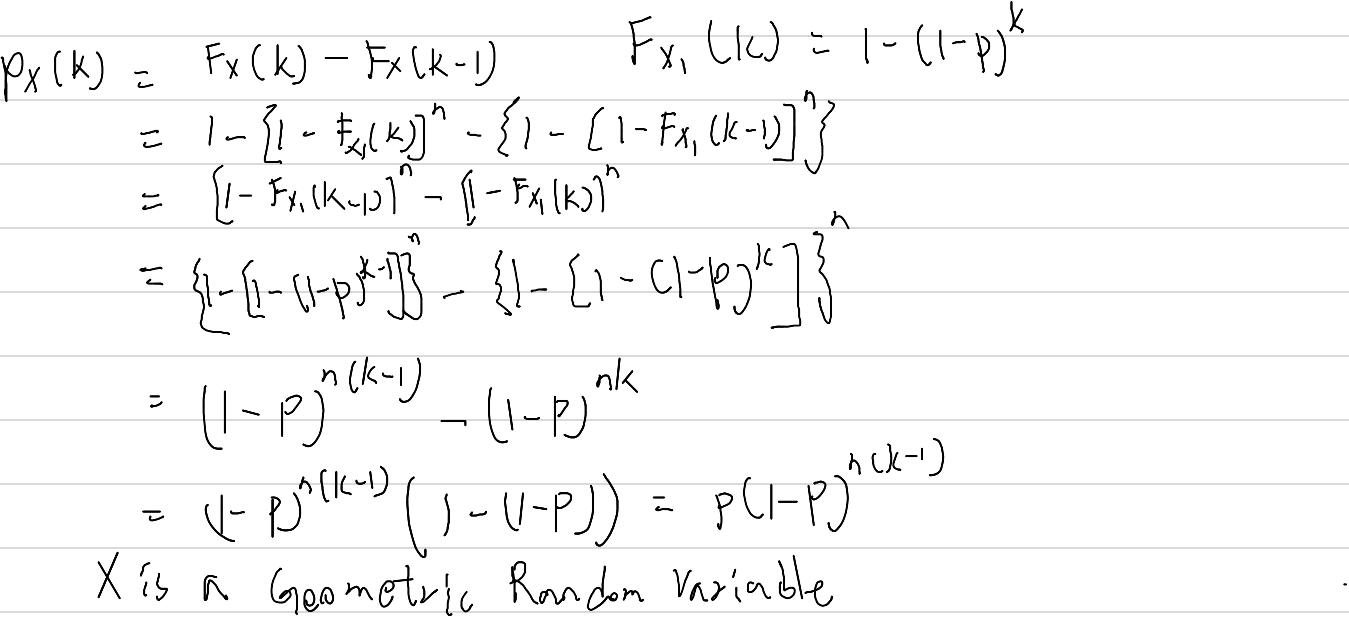 p_X(k) = F_X(k) - F_X(k-1)    F_{X_1}(k) = 1-(1-p)^k
= 1-[1-F_{X_1}(k)]^n - {1-[1-F_{X_1}(k-1)]^n}
= [1-F_{X_1}(k-1)]^n - [1-F_{X_1}(k)]^n
= {1-[1-(1-p)^{k-1}]}^n - {1-[1-(1-p)^k]}^n
= (1-p)^{n(k-1)} - (1-p)^{nk}
= (1-p)^{n(k-1)} (1-(1-p)) = p(1-p)^{n(k-1)}
X is a Geometric Random Variable